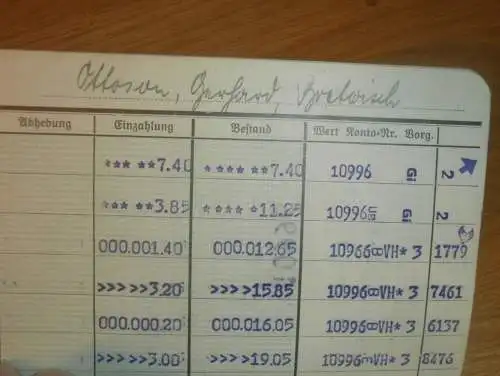 Ottoson, Gerhard,
Abhebung Einzahlung Bestand Wert Konto-Nr. Vorg.
*** **7.40 **** **7.40 10996 Gi 2
*** **3.85 **** *11.25 10996 Gi 2
000.001.40 000.012.65 10966 VH* 3 1779
>>>>>3.20 >>>>15.85 10996 VH* 3 7461
000.000.20 000.016.05 10996 VH* 3 6137
>>>>>3.00 >>>>19.05 10996 VH* 3 8476